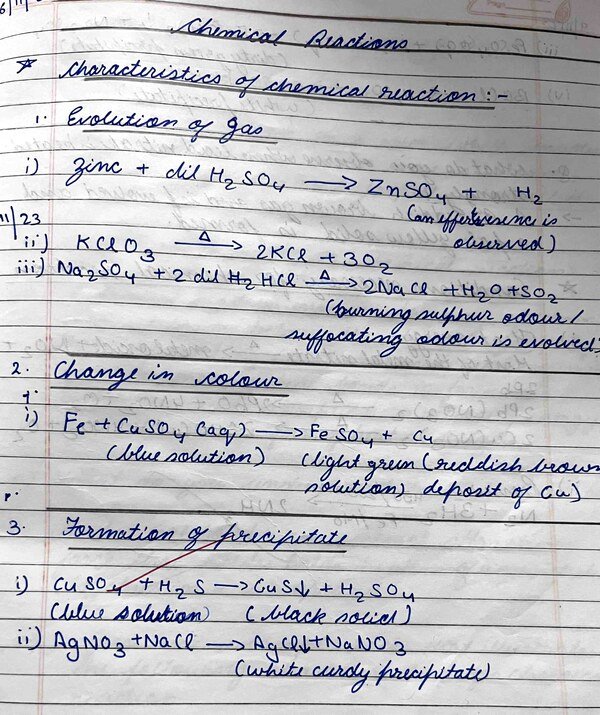 6/11/
Chemical Reactions
* Characteristics of chemical reaction :-
1. Evolution of gas
i) Zinc + dil H₂SO₄ ⟶ ZnSO₄ + H₂
(an effervesence is
11/23
observed)
ii) KClO₃ —Δ→ 2KCl + 3O₂
iii) Na₂SO₄ + 2 dil H₂ HCl —Δ→ 2NaCl + H₂O + SO₂
(burning sulphur odour /
suffocating odour is evolved)
2. Change in colour
i) Fe + CuSO₄ (aq) ⟶ FeSO₄ + Cu
(blue solution) (light green (reddish brown
solution) deposit of Cu)
3. Formation of precipitate
i) CuSO₄ + H₂S ⟶ CuS↓ + H₂SO₄
(blue solution) (black solid)
ii) AgNO₃ + NaCl ⟶ AgCl↓ + NaNO₃
(white curdy precipitate)